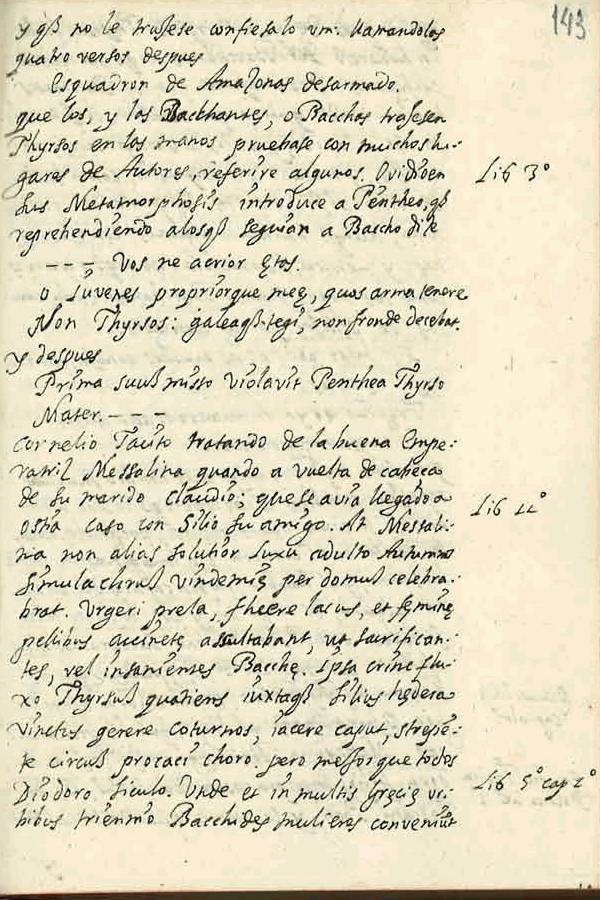 143
y qß no le truxese confiesalo vm: llamandolas
quatro versos despues
Esquadron de Amazonas desarmado.
que los, y las Bacchantes, o Bacchas traxesen
Thyrsos en las manos pruebase con muchos lu-
gares de Autores, referire algunos. Ovidio en
sus Metamorphosis introduce a Pentheo, qß
reprehendiendo alosqß seguian a Baccho dize
Lib 3º
--- Vos ne acrior ętas.
o Juvenes propriorque meę, quos arma tenere
Non Thyrsos: galeaqß tegi, non fronde decebat.
y despues
Prima suuß misso violavit Penthea Thyrso
Mater. ---
Cornelio Tacito tratando de la buena Empe-
ratriz Messalina quando a vuelta de cabeca
de su marido Claudio; que se avia llegado a
ostia caso con Silio su amigo. At Messali-
Lib 11º
na non alias solutior luxu adulto Autumno
simulachruß vindemię per domuß celebra-
brat. Urgeri prela, fluere lacus, et fęminę
pellibus accinctę assultabant, ut sacrifican-
tes, vel insanientes Bacchę. Ipsa crine flu-
xo Thyrsuß quatiens iuxtaqß Silius hędera
vinctus gerere coturnos, iacere caput, strepe-
te circuß procaci choro. pero mejor que todos
Diodoro Siculo. Unde et in multis Gręcię ur-
Lib 5º cap 2º
bibus triennio Bacchides mulieres conveniūt